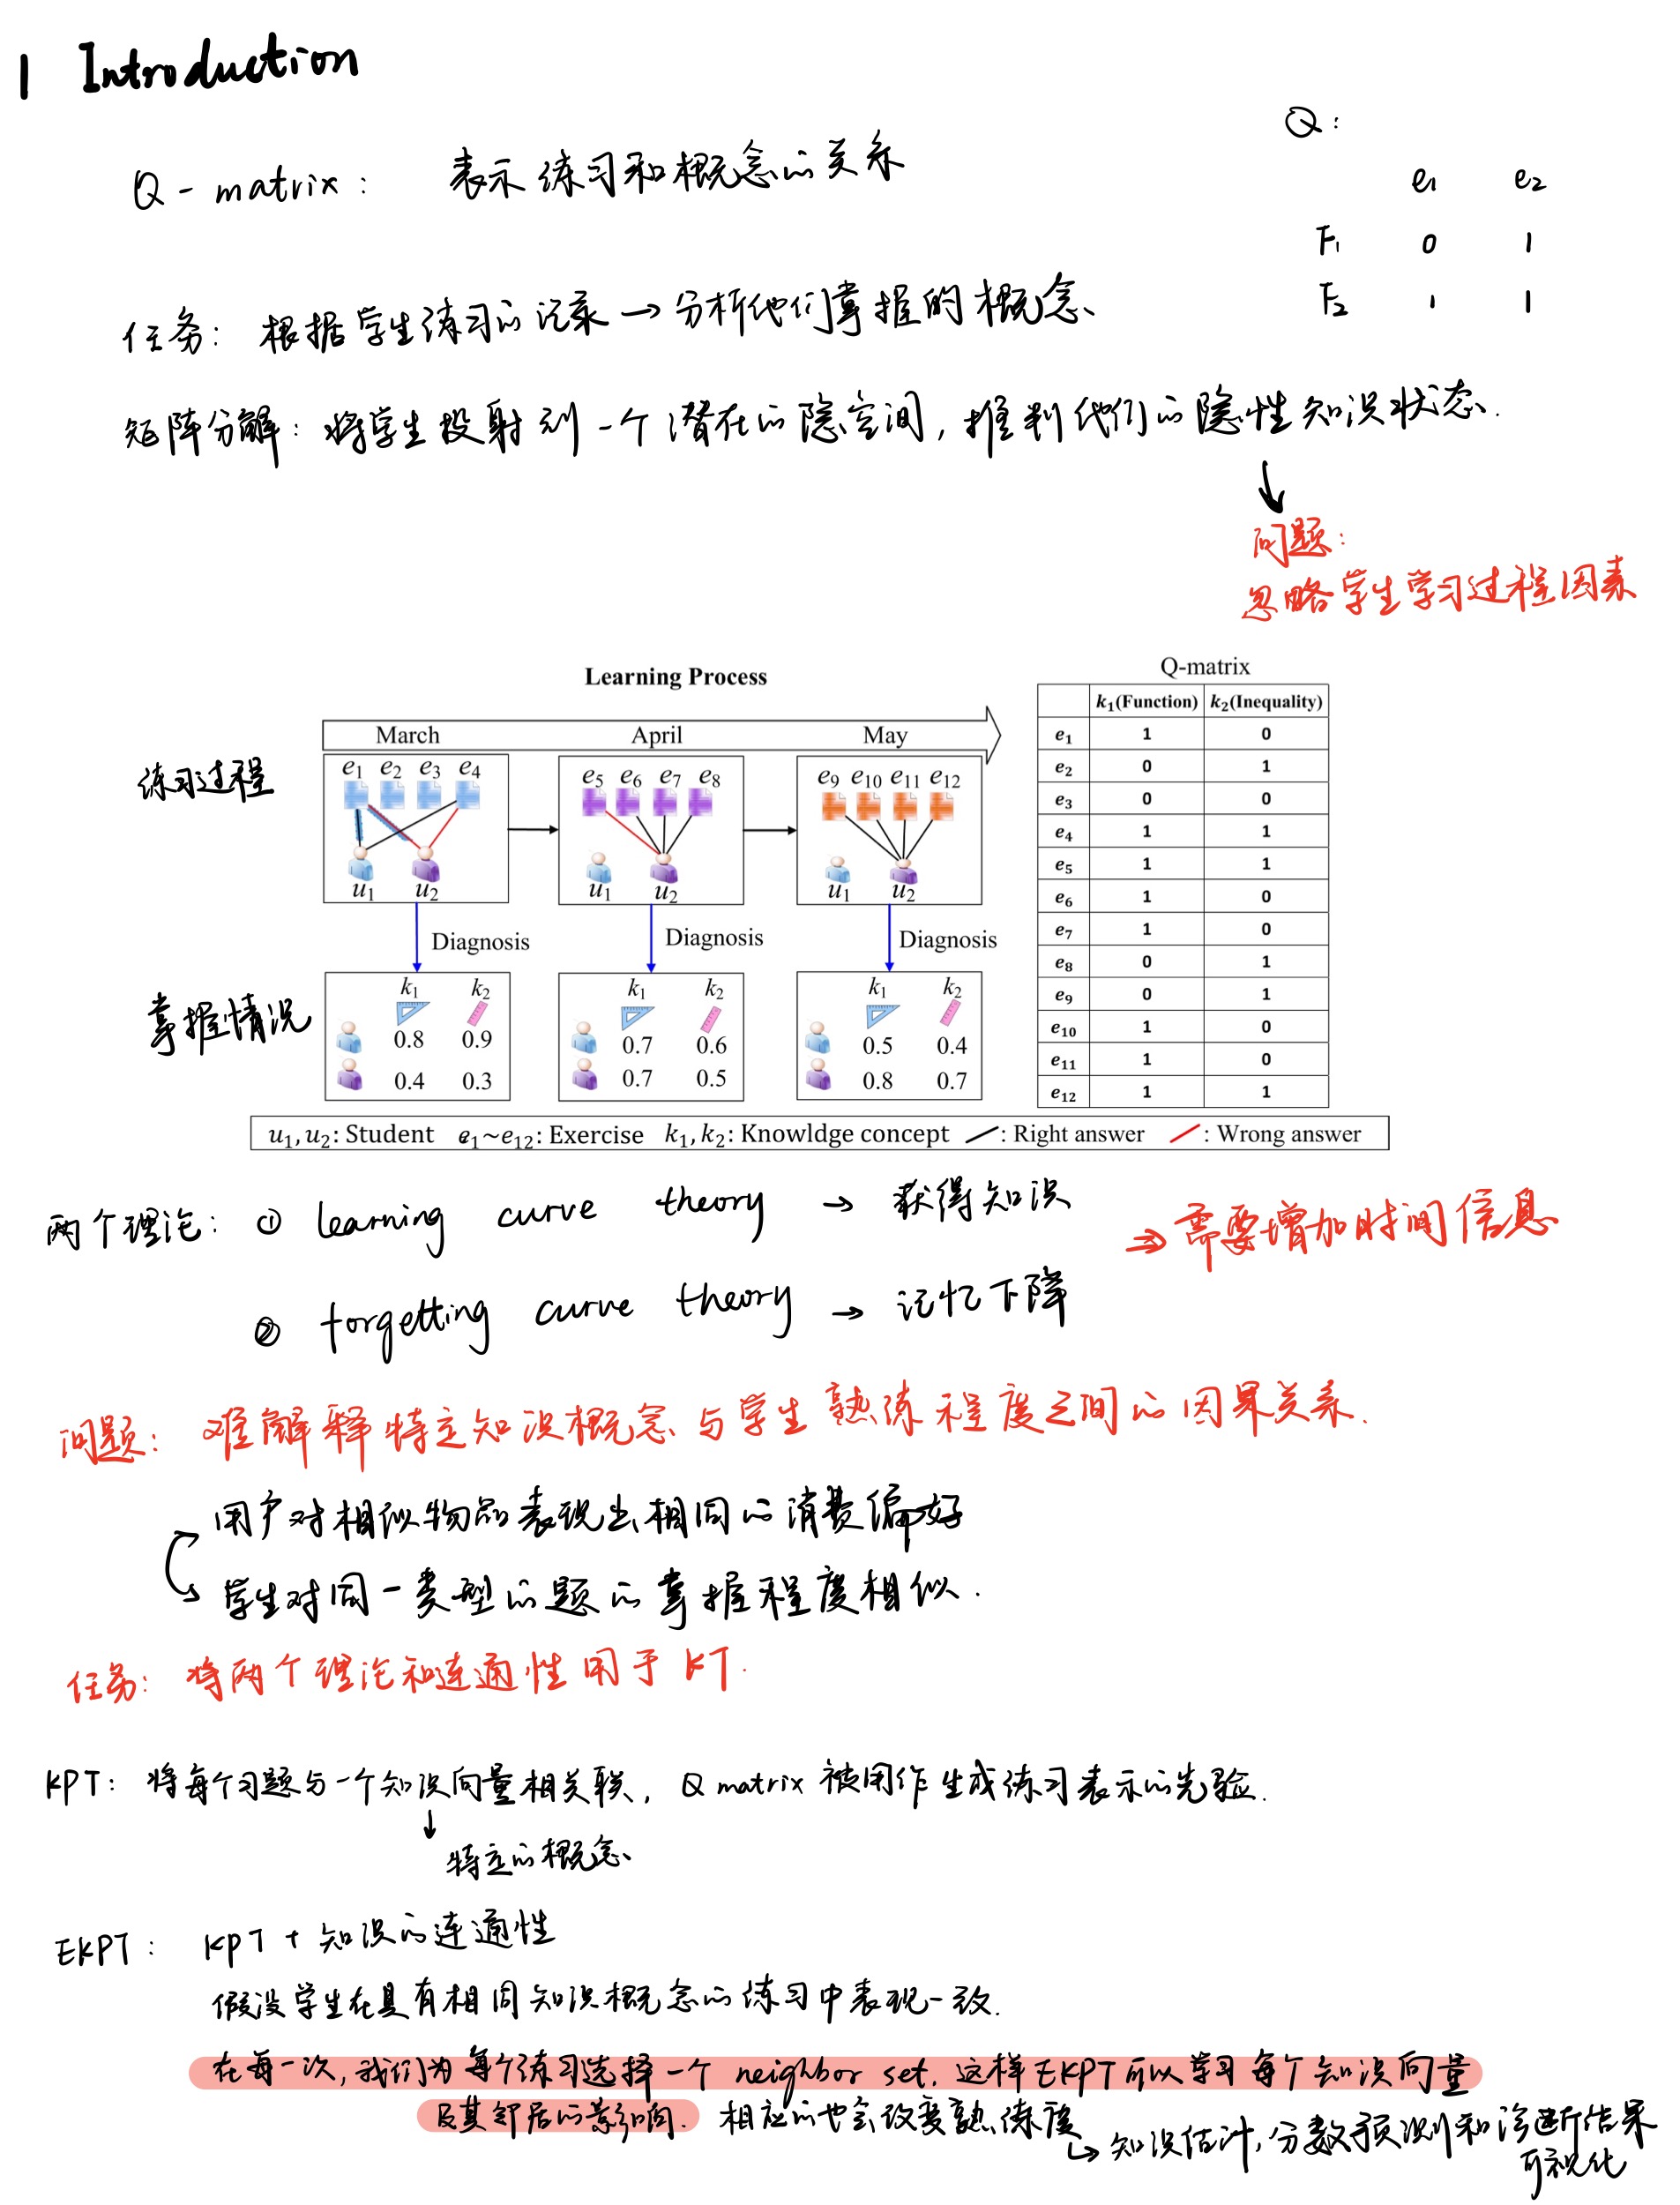 1 Introduction
Q - matrix: 表示练习和概念的关系
Q:
e1 e2
F1 0 1
F2 1 1
任务: 根据学生练习的记录→分析他们掌握的概念、
矩阵分解: 将学生投射到一个潜在的隐空间, 推判他们的隐性知识状态.
↓
问题:
忽略学生学习过程因素
Learning Process
March April May
练习过程
e1 e2 e3 e4
u1 u2
e5 e6 e7 e8
u1 u2
e9 e10 e11 e12
u1 u2
Diagnosis Diagnosis Diagnosis
掌握情况
k1 k2
0.8 0.9
0.4 0.3
k1 k2
0.7 0.6
0.7 0.5
k1 k2
0.5 0.4
0.8 0.7
Q-matrix
k1(Function) k2(Inequality)
e1 1 0
e2 0 1
e3 0 0
e4 1 1
e5 1 1
e6 1 0
e7 1 0
e8 0 1
e9 0 1
e10 1 0
e11 1 0
e12 1 1
u1,u2: Student e1~e12: Exercise k1,k2: Knowldge concept : Right answer : Wrong answer
两个理论: ① learning curve theory → 获得知识
⇒ 需要增加时间信息
② forgetting curve theory → 记忆下降
问题: 难解释特定知识概念与学生熟练程度之间的因果关系.
用户对相似物品表现出相同的消费偏好
学生对同一类型的题的掌握程度相似.
任务: 将两个理论和连通性用于 KT.
KPT: 将每个习题与一个知识向量相关联, Q matrix 被用作生成练习表示的先验.
↓
特定的概念、
EKPT: KPT + 知识的连通性
假设学生在具有相同知识概念的练习中表现一致.
在每一次, 我们为每个练习选择一个 neighbor set. 这样EKPT可以学习每个知识向量
及其邻居的影响. 相应的也会改变熟练度
↳ 知识估计, 分数预测和诊断结果
可视化